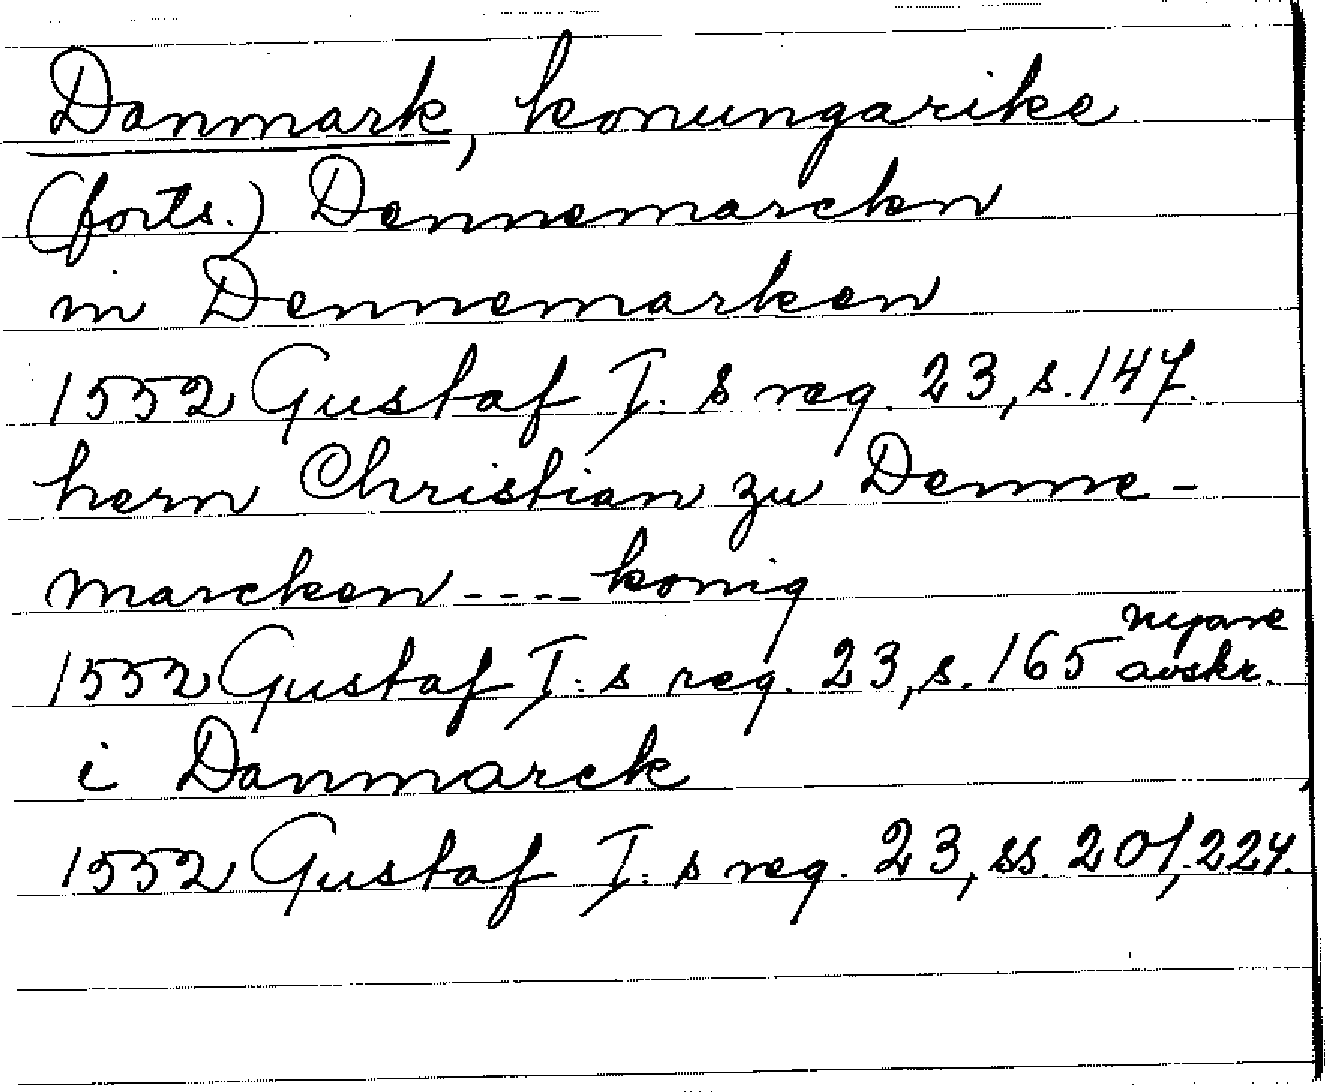 Danmark, konungarike
(forts.) Dennemarcken
in Dennemarken
1552 Gustaf I: s reg. 23, s. 147.
hern Christian zu Denne-
marcken ---- konig
1552 Gustaf I: s reg. 23, s. 165 nyare avskr.
i Danmarck
1552 Gustaf I: s reg. 23, ss. 201, 224.